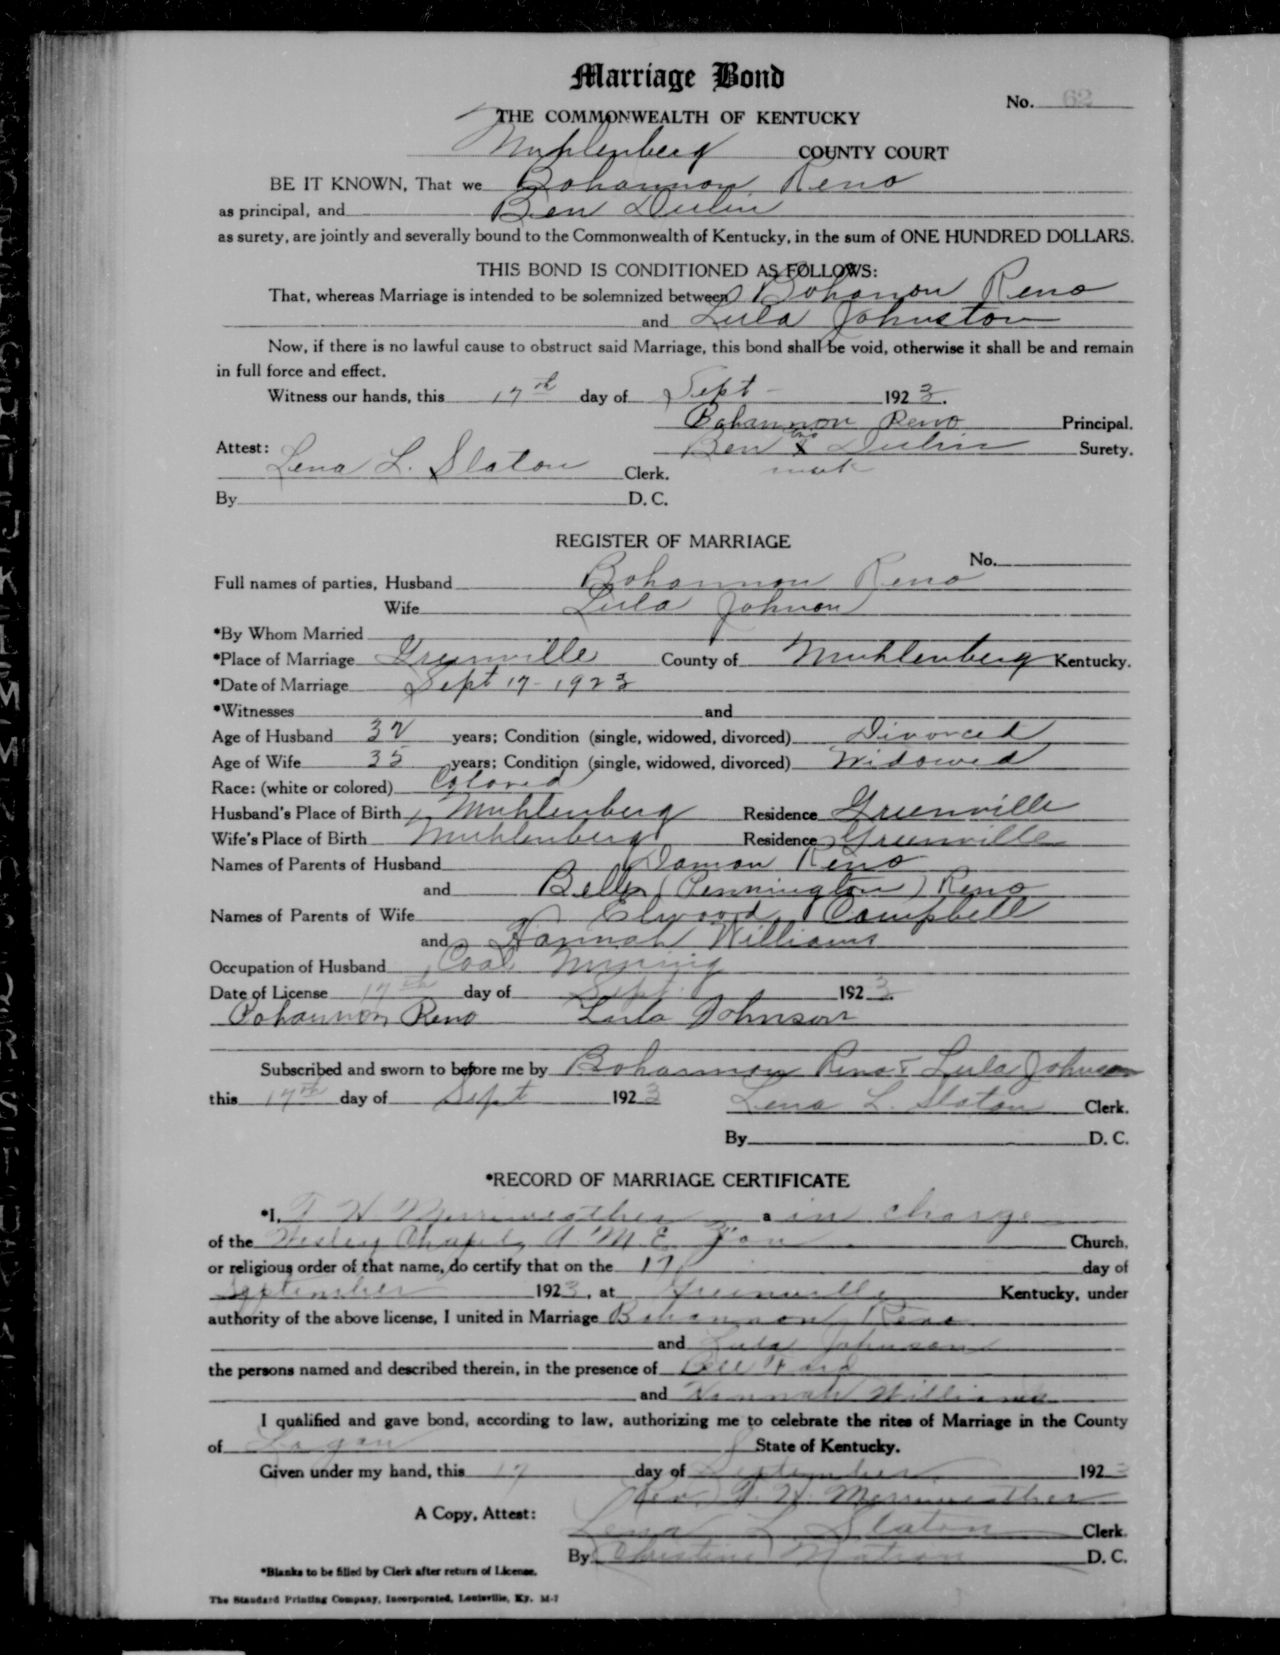 Marriage Bond
No. 62
THE COMMONWEALTH OF KENTUCKY
Muhlenberg COUNTY COURT
BE IT KNOWN, That we Bohannon Reno
as principal, and Ben Dulin
as surety, are jointly and severally bound to the Commonwealth of Kentucky, in the sum of ONE HUNDRED DOLLARS.
THIS BOND IS CONDITIONED AS FOLLOWS:
That, whereas Marriage is intended to be solemnized between Bohanon Reno
and Lula Johnston
Now, if there is no lawful cause to obstruct said Marriage, this bond shall be void, otherwise it shall be and remain
in full force and effect.
Witness our hands, this 17th day of Sept 1923.
Bohannon Reno Principal.
Attest: Ben X Dulin Surety.
Lena L. Slaton Clerk. mark
By D. C.
REGISTER OF MARRIAGE
No.
Full names of parties, Husband Bohannon Reno
Wife Lula Johnson
*By Whom Married
*Place of Marriage Greenville County of Muhlenberg Kentucky.
*Date of Marriage Sept 17-1923
*Witnesses and
Age of Husband 32 years; Condition (single, widowed, divorced) Divorced
Age of Wife 35 years; Condition (single, widowed, divorced) Widowed
Race: (white or colored) Colored
Husband's Place of Birth Muhlenberg Residence Greenville
Wife's Place of Birth Muhlenberg Residence Greenville
Names of Parents of Husband Damon Reno
and Belle (Pennington) Reno
Names of Parents of Wife Elwood Campbell
and Hannah Williams
Occupation of Husband Coal Mining
Date of License 17th day of Sept. 1923.
Bohannon Reno Lula Johnson
Subscribed and sworn to before me by Bohannon Reno & Lula Johnson
this 17th day of Sept 1923 Lena L. Slaton Clerk.
By D. C.
*RECORD OF MARRIAGE CERTIFICATE
*I, H Merriweather a in charge
of the Wesley Chapel, A. M. E. Zion Church,
or religious order of that name, do certify that on the 17 day of
September 1923, at Greenville Kentucky, under
authority of the above license, I united in Marriage Bohannon Reno
and Lula Johnson
the persons named and described therein, in the presence of
and Hannah Williams
I qualified and gave bond, according to law, authorizing me to celebrate the rites of Marriage in the County
of Logan State of Kentucky.
Given under my hand, this 17 day of September 1923
Rev. H. Merriweather
A Copy, Attest: Lena L. Slaton Clerk.
By Christine D. C.
*Blanks to be filled by Clerk after return of License.
The Standard Printing Company, Incorporated, Louisville, Ky. M-7